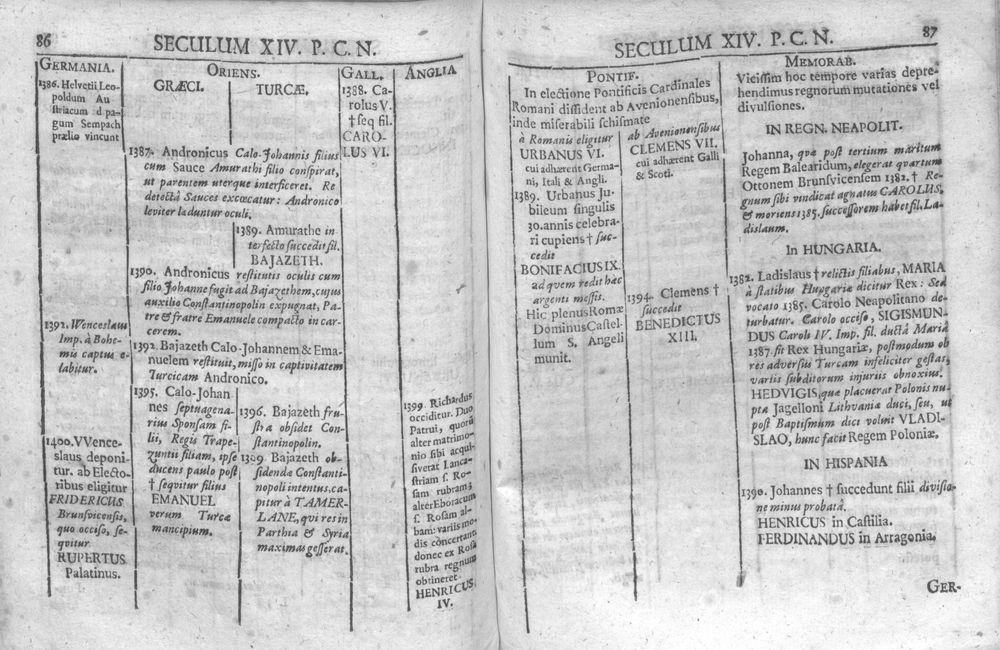 86
SECULUM XIV. P. C. N.
GERMANIA.
1386. Helvetii Leo-
poldum Au
striacum d pa-
gum Sempach
prælio vincunt
1392. Wenceslaus
Imp. à Bohe-
mis captus e-
labitur.
1400. VVence-
slaus deponi-
tur. ab Electo-
ribus eligitur
FRIDERICUS
Brunsvicensis,
quo occiso, se-
quitur
RUPERTUS
Palatinus.
ORIENS.
GRÆCI.
TURCÆ.
1387. Andronicus Calo-Johannis filius
cum Sauce Amurathi filio conspirat,
ut parentem uterque interficeret. Re
detectâ Sauces excœcatur: Andronico
leviter læduntur oculi.
1389. Amurathe in
terfecto succedit fil.
BAJAZETH.
1390. Andronicus restitutis oculis cum
filio Johanne fugit ad Bajazethem, cujus
auxilio Constantinopolin expugnat, Pa-
tre & fratre Emanuele compacto in car-
cerem.
1392. Bajazeth Calo-Johannem & Ema-
nuelem restituit, misso in captivitatem
Turcicam Andronico.
1395. Calo-Johan
nes septuagena-
rius Sponsam fi-
lii, Regis Trape-
zuntii filiam, ipse
ducens paulo post
† sequitur filius
EMANUEL
verum Turcæ
mancipium.
1396. Bajazeth fru-
strà obsidet Con-
stantinopolin.
1399 Bajazeth ob-
sidendæ Constanti-
nopoli intentus, ca-
pitur à TAMER-
LANE, qui res in
Parthia & Syria
maximas gesserat.
GALL.
1388. Ca-
rolus V.
† seq fil.
CARO-
LUS VI.
ANGLIA
1399. Richardus
occiditur. Duo
Patrui, quorū
alter matrimo-
nio sibi acqui-
siverat Lanca-
striam s. Ro-
sam rubram;
alter Eboracum
s. Rosam al-
bam: variis mo-
dis cōcertant
donec ex Rosa
rubra regnum
obtineret
HENRICUS
IV.
87
SECULUM XIV. P. C. N.
PONTIF.
In electione Pontificis Cardinales
Romani dissident ab Avenionensibus,
inde miserabili schismate
à Romanis eligitur
URBANUS VI.
cui adhærent Germa-
ni, Itali & Angli.
1389. Urbanus Ju-
bileum singulis
30. annis celebra-
ri cupiens † suc-
cedit
BONIFACIUS IX.
ad quem redit hæc
argenti messis.
Hic plenus Romæ
Dominus Castel-
lum S. Angeli
munit.
ab Avenionensibus
CLEMENS VII.
cui adhærent Galli
& Scoti.
1394. Clemens †
succedit
BENEDICTUS
XIII.
MEMORAB.
Vicissim hoc tempore varias depre-
hendimus regnorum mutationes vel
divulsiones.
IN REGN. NEAPOLIT.
Johanna, quæ post tertium maritum
Regem Balearidum, elegerat quartum
Ottonem Brunsvicensem 1382. † Re-
gnum sibi vindicat agnatus CAROLUS,
& moriens 1385. successorem habet fil. La-
dislaum.
In HUNGARIA.
1382. Ladislaus † relictis filiabus, MARIA
à statibus Hungariæ dicitur Rex: Sed
vocato 1385. Carolo Neapolitano de-
turbatur. Carolo occiso, SIGISMUN-
DUS Caroli IV. Imp. fil. ductâ Mariâ
1387. fit Rex Hungariæ, postmodum ob
res adversus Turcam infeliciter gestas,
variis subditorum injuriis obnoxius.
HEDVIGIS, quæ placuerat Polonis nu-
pta Jagelloni Lithvaniæ duci, seu, ut
post Baptismum dici voluit VLADI-
SLAO, hunc facit Regem Poloniæ.
IN HISPANIA
1390. Johannes † succedunt filii divisio-
ne minus probatâ.
HENRICUS in Castilia.
FERDINANDUS in Arragonia.
GER-